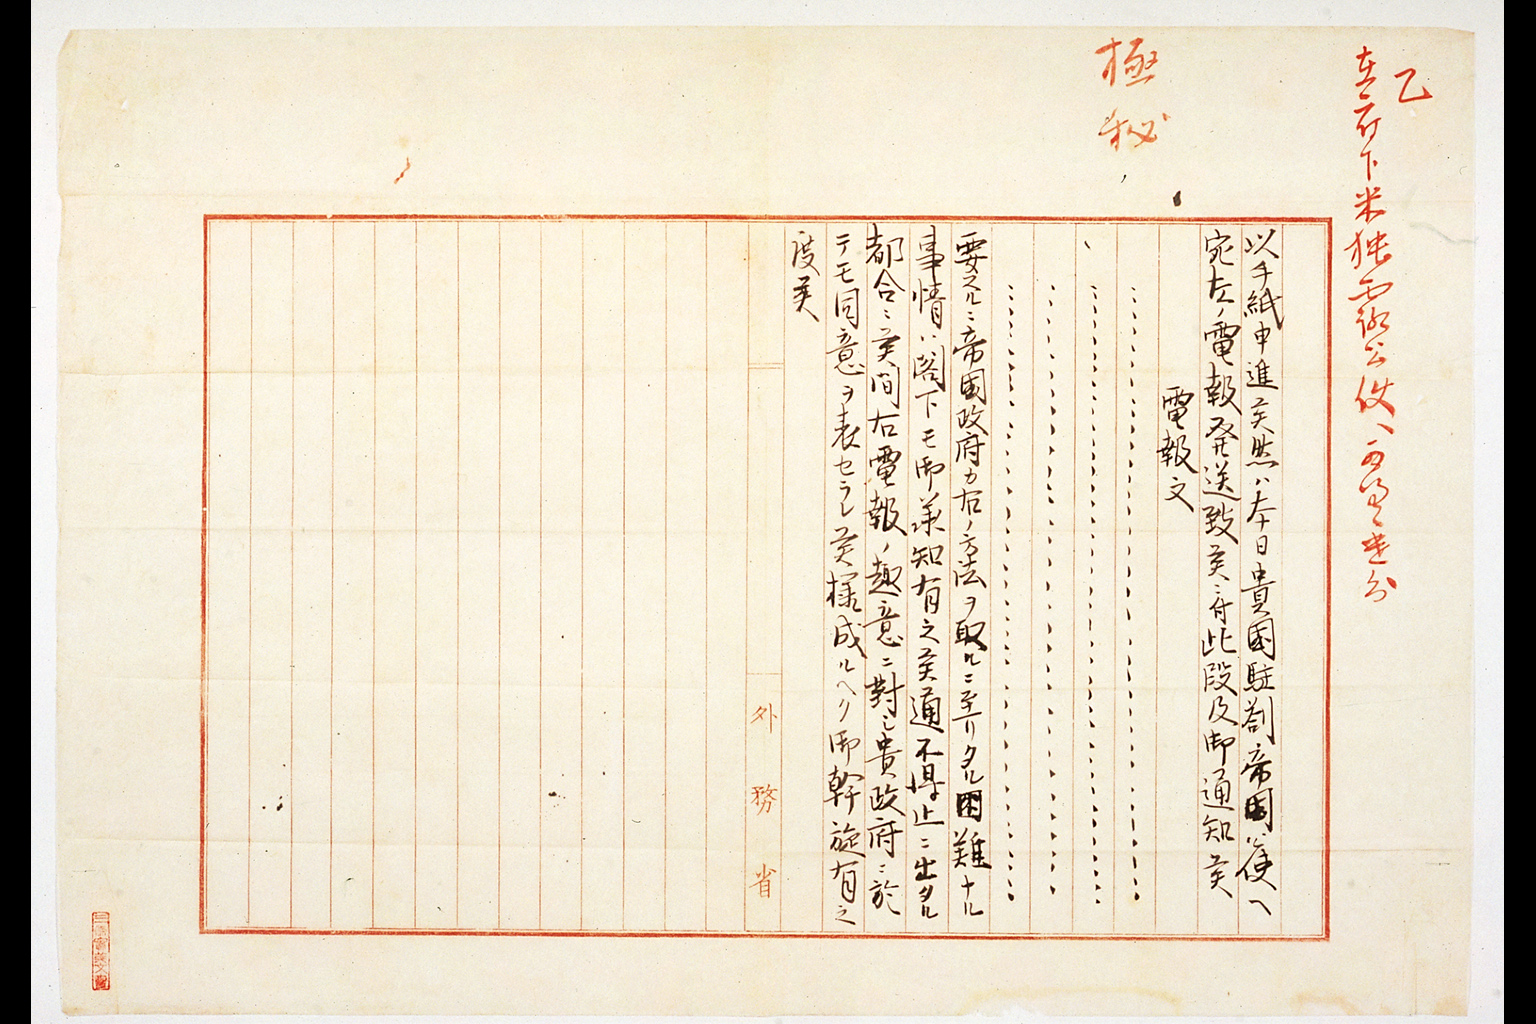 乙
在府下米独露公使ヘ
極秘
以手紙申進候然ハ本日貴国駐剳帝国公使ヘ
宛左ノ電報発送致候ニ付此段及御通知候
電報文
要スルニ帝国政府カ右ノ方法ヲ取ルニ至リタル困難ナル
事情ハ閣下モ御承知有之候通不得止ニ出タル
都合ニ候間右電報ノ趣意ニ対シ貴政府ニ於
テモ同意ヲ表セラレ候様成ルヘク御幹旋有之
度候
外務省